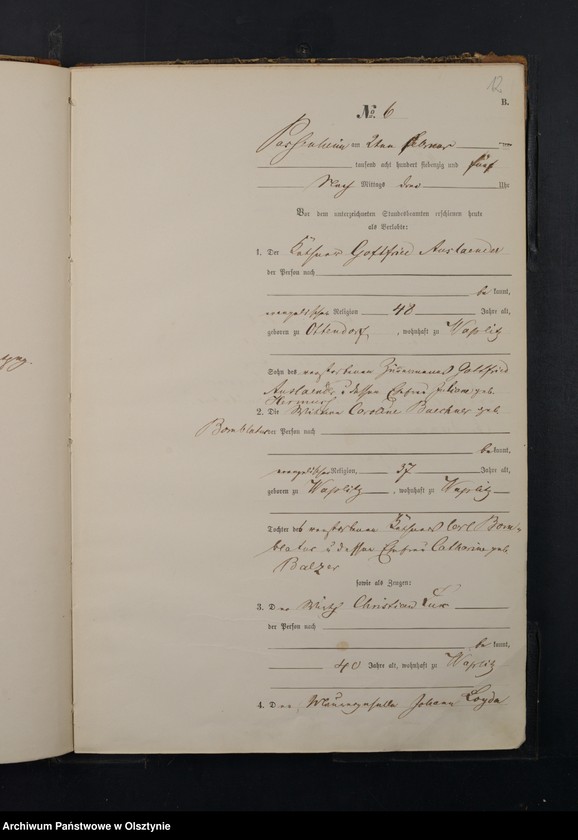 12
B.
№ 6
Passenheim am 2ten Februar
tausend acht hundert siebenzig und fünf
Nach Mittags drei Uhr
Vor dem unterzeichneten Standesbeamten erschienen heute
als Verlobte:
1. Der Käthner Gottfried Auslaender
der Person nach
be kannt,
evangelischer Religion 48 Jahre alt,
geboren zu Ottendorf, wohnhaft zu Waplitz
Sohn des verstorbenen Gottfried
Auslaender u dessen Ehefrau Juliane geb.
2. Die Wittwe Caroline Buechner geb
Bornblatus der Person nach
be kannt,
evangelischer Religion, 37 Jahre alt,
geboren zu Waplitz, wohnhaft zu Waplitz
Tochter des verstorbenen Käthners Carl Born-
blatus u dessen Ehefrau Catharine geb
Balzer
sowie als Zeugen:
3. Der Wirth Christian Lux
der Person nach
be kannt,
40 Jahre alt, wohnhaft zu Waplitz
4. Der Maurergeselle Johann Loyda
Archiwum Państwowe w Olsztynie